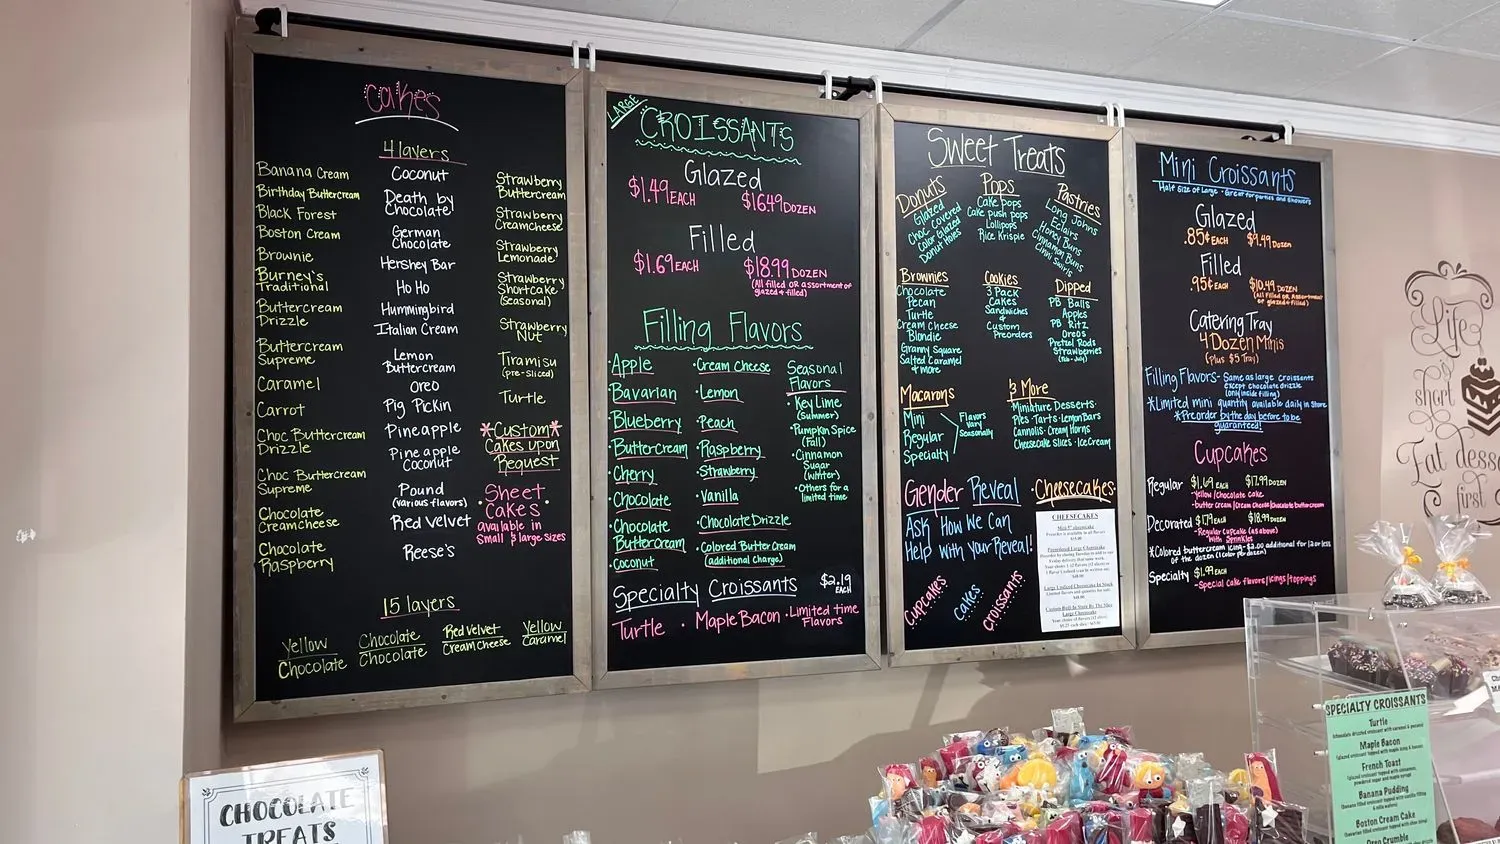 Cakes
4 layers
Banana Cream
Birthday Buttercream
Black Forest
Boston Cream
Brownie
Burney's
Traditional
Buttercream
Drizzle
Buttercream
Supreme
Caramel
Carrot
Choc Buttercream
Drizzle
Choc Buttercream
Supreme
Chocolate
Creamcheese
Chocolate
Raspberry
Coconut
Death by
Chocolate
German
Chocolate
Hershey Bar
Ho Ho
Hummingbird
Italian Cream
Lemon
Buttercream
Oreo
Pig Pickin
Pineapple
Pineapple
Coconut
Pound
(various flavors)
Red Velvet
Reese's
Strawberry
Buttercream
Strawberry
Creamcheese
Strawberry
Lemonade
Strawberry
Shortcake
(seasonal)
Strawberry
Nut
Tiramisu
(pre-sliced)
Turtle
*Custom*
Cakes upon
Request
·Sheet·
Cakes
available in
Small & large sizes
15 layers
Yellow
Chocolate
Chocolate
Chocolate
Red Velvet
Cream Cheese
Yellow
Caramel
LARGE
CROISSANTS
Glazed
$1.49 EACH $16.49 DOZEN
Filled
$1.69 EACH $18.99 DOZEN
(All filled OR assortment of
glazed & filled)
Filling Flavors
·Apple
·Bavarian
·Blueberry
·Buttercream
·Cherry
·Chocolate
·Chocolate
Buttercream
·Coconut
·Cream Cheese
·Lemon
·Peach
·Raspberry
·Strawberry
·Vanilla
·Chocolate Drizzle
·Colored Butter Cream
(additional Charge)
Seasonal
Flavors
·Key Lime
(Summer)
·Pumpkin Spice
(Fall)
·Cinnamon
Sugar
(Winter)
·Others for a
limited time
Specialty Croissants $2.19
EACH
Turtle · Maple Bacon · Limited time
Flavors
Sweet Treats
Donuts
Glazed
Choc Covered
Color Glazed
Donut Holes
Pops
Cake pops
Cake push pops
Lollipops
Rice Krispie
Pastries
Long Johns
Eclairs
Honey Buns
Cinnamon Buns
Cinni Swirls
Brownies
Chocolate
Pecan
Turtle
Cream Cheese
Blondie
Granny Square
Salted Caramel
& more
Cookies
3 Pack
Cakes
Sandwiches
&
Custom
Preorders
Dipped
PB Balls
Apples
PB Ritz
Oreos
Pretzel Rods
Strawberries
Macarons
Mini
Regular
Specialty
Flavors
Vary
Seasonally
& More
·Miniature Desserts·
Pies·Tarts·Lemon Bars
Cannolis·Cream Horns
Cheesecake Slices·Ice Cream
Gender Reveal
Ask How We Can
Help with your Reveal!
Cupcakes
Cakes
Croissants
·Cheesecakes·
CHEESECAKES
Mini Croissants
Half Size of Large · Great for parties and Showers
Glazed
.85¢ EACH $9.49 DOZEN
Filled
.95¢ EACH $10.49 DOZEN
(All filled OR Assortment
of glazed & filled)
Catering Tray
4 Dozen Minis
(Plus $5 Tray)
Filling Flavors - Same as large croissants
except chocolate drizzle
(only inside filling)
*Limited mini quantity available daily in store
*Preorder by the day before to be
guaranteed!
Cupcakes
Regular $1.69 EACH $17.99 DOZEN
-Yellow/chocolate cake
-butter cream/cream cheese/chocolate buttercream
Decorated $1.79 EACH $18.99 DOZEN
-Regular Cupcake (as above)
with Sprinkles
*Colored buttercream icing- $2.00 additional for 12 or less
of the dozen (1 color per dozen)
Specialty $1.99 EACH
-Special cake flavors/icings/toppings
Life
short
Eat dessert
first
CHOCOLATE
TREATS
SPECIALTY CROISSANTS
Turtle
Maple Bacon
French Toast
Banana Pudding
Boston Cream Cake
Oreo Crumble